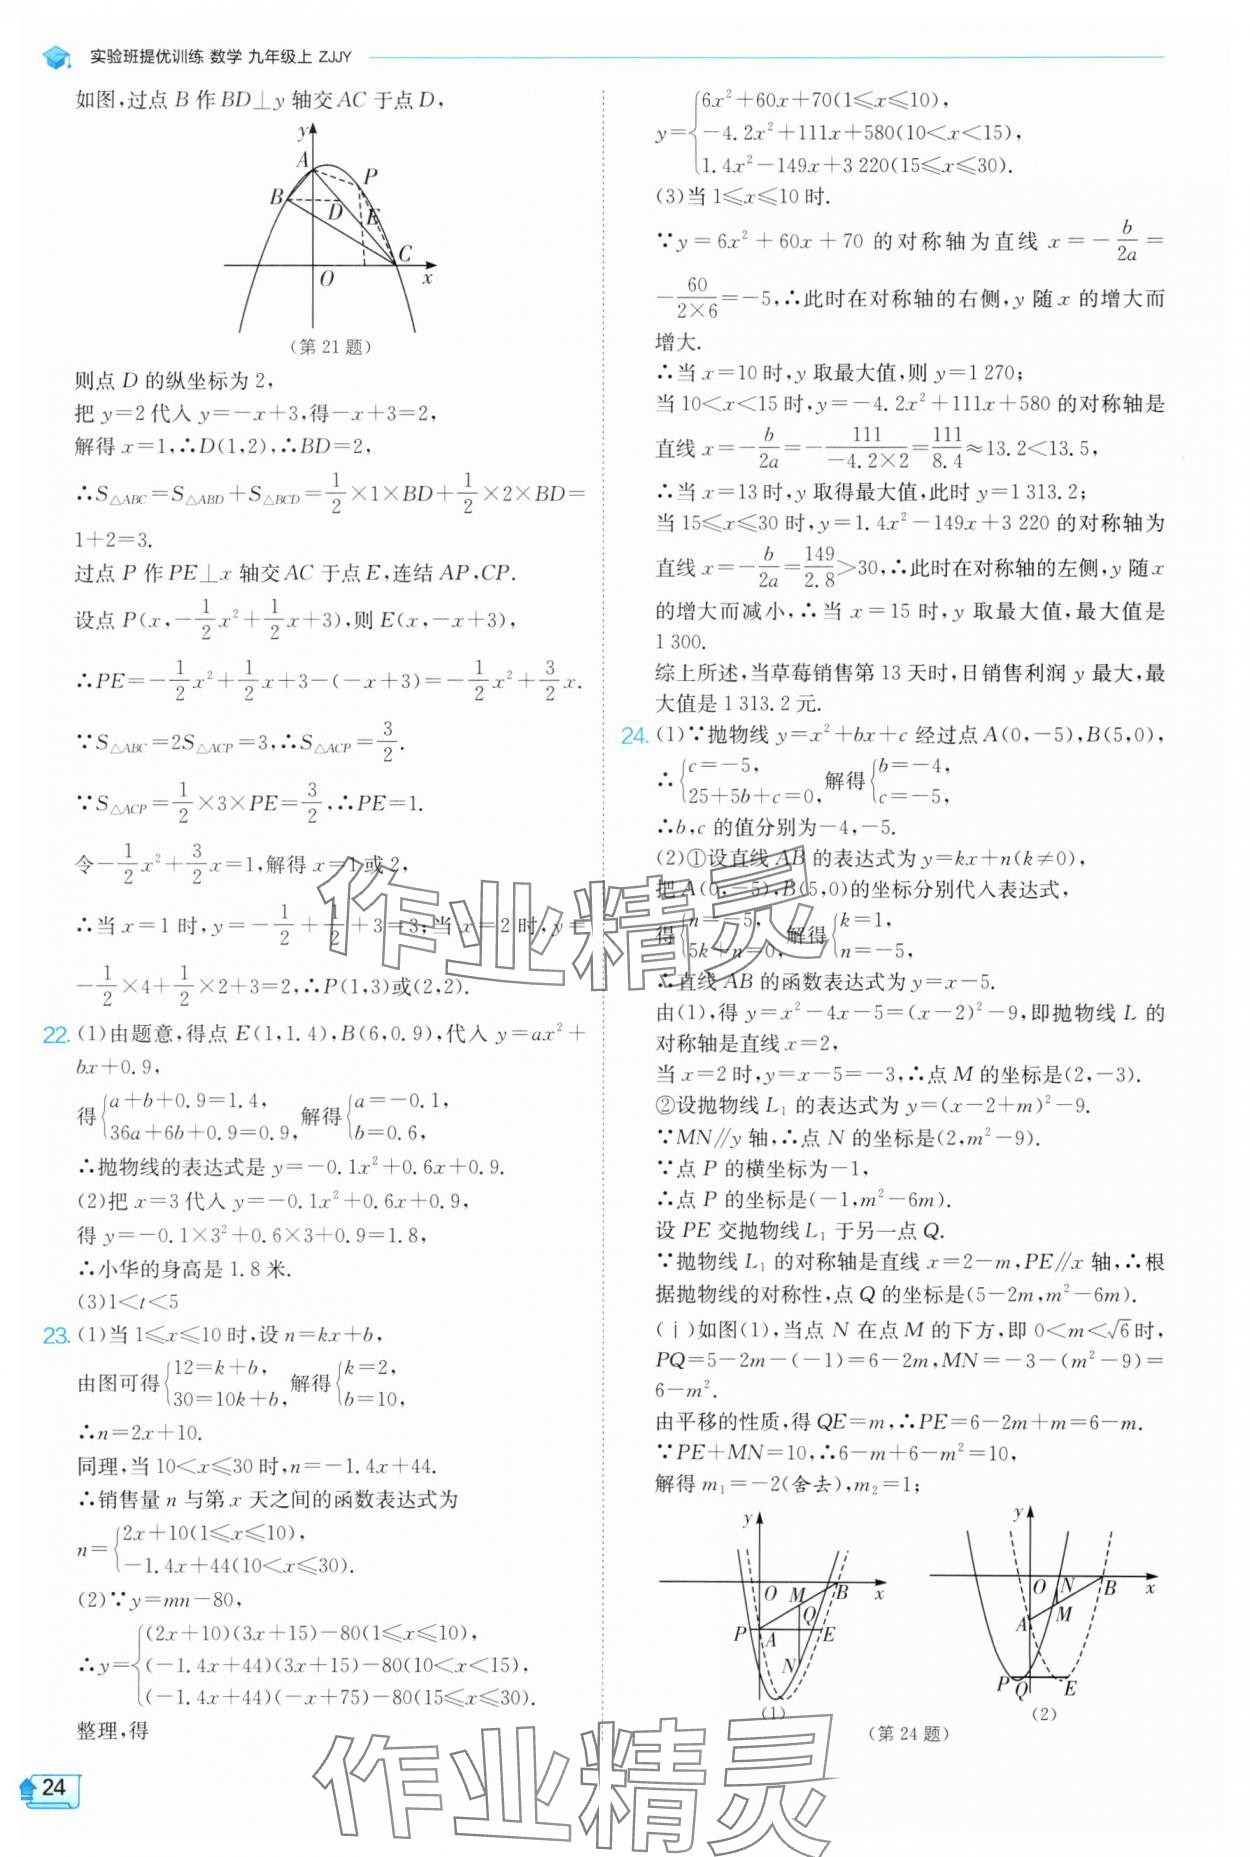 实验班提优训练 数学 九年级上 ZJJY
如图,过点 B 作 BD⊥y 轴交 AC 于点 D,
y
A
P
B
D
E
C
O
x
(第 21 题)
则点 D 的纵坐标为 2,
把 y=2 代入 y=-x+3,得-x+3=2,
解得 x=1,∴D(1,2),∴BD=2,
∴S△ABC=S△ABD+S△BCD=1/2×1×BD+1/2×2×BD=
1+2=3.
过点 P 作 PE⊥x 轴交 AC 于点 E,连结 AP,CP.
设点 P(x,-1/2x²+1/2x+3),则 E(x,-x+3),
∴PE=-1/2x²+1/2x+3-(-x+3)=-1/2x²+3/2x.
∵S△ABC=2S△ACP=3,∴S△ACP=3/2.
∵S△ACP=1/2×3×PE=3/2,∴PE=1.
令-1/2x²+3/2x=1,解得 x=1 或 2,
∴当 x=1 时,y=-1/2+1/2+3=3;当 x=2 时,y=
-1/2×4+1/2×2+3=2,∴P(1,3)或(2,2).
22. (1)由题意,得点 E(1,1.4),B(6,0.9),代入 y=ax²+
bx+0.9,
得{a+b+0.9=1.4, 36a+6b+0.9=0.9, 解得{a=-0.1, b=0.6,
∴抛物线的表达式是 y=-0.1x²+0.6x+0.9.
(2)把 x=3 代入 y=-0.1x²+0.6x+0.9,
得 y=-0.1×3²+0.6×3+0.9=1.8,
∴小华的身高是 1.8 米.
(3)1<t<5
23. (1)当 1≤x≤10 时,设 n=kx+b,
由图可得{12=k+b, 30=10k+b, 解得{k=2, b=10,
∴n=2x+10.
同理,当 10<x≤30 时,n=-1.4x+44.
∴销售量 n 与第 x 天之间的函数表达式为
n={2x+10(1≤x≤10),
-1.4x+44(10<x≤30).
(2)∵y=mn-80,
∴y={(2x+10)(3x+15)-80(1≤x≤10),
(-1.4x+44)(3x+15)-80(10<x<15),
(-1.4x+44)(-x+75)-80(15≤x≤30).
整理,得
24
y={6x²+60x+70(1≤x≤10),
-4.2x²+111x+580(10<x<15),
1.4x²-149x+3 220(15≤x≤30).
(3)当 1≤x≤10 时.
∵y=6x²+60x+70 的对称轴为直线 x=-b/2a=
-60/2×6=-5,∴此时在对称轴的右侧,y 随 x 的增大而
增大.
∴当 x=10 时,y 取最大值,则 y=1 270;
当 10<x<15 时,y=-4.2x²+111x+580 的对称轴是
直线 x=-b/2a=-111/-4.2×2=111/8.4≈13.2<13.5,
∴当 x=13 时,y 取得最大值,此时 y=1 313.2;
当 15≤x≤30 时,y=1.4x²-149x+3 220 的对称轴为
直线 x=-b/2a=149/2.8>30,∴此时在对称轴的左侧,y 随 x
的增大而减小,∴当 x=15 时,y 取最大值,最大值是
1 300.
综上所述,当草莓销售第 13 天时,日销售利润 y 最大,最
大值是 1 313.2 元.
24. (1)∵抛物线 y=x²+bx+c 经过点 A(0,-5),B(5,0),
∴{c=-5, 25+5b+c=0, 解得{b=-4, c=-5,
∴b,c 的值分别为-4,-5.
(2)①设直线 AB 的表达式为 y=kx+n(k≠0),
把 A(0,-5),B(5,0)的坐标分别代入表达式,
得{n=-5, 5k+n=0, 解得{k=1, n=-5,
∴直线 AB 的函数表达式为 y=x-5.
由(1),得 y=x²-4x-5=(x-2)²-9,即抛物线 L 的
对称轴是直线 x=2,
当 x=2 时,y=x-5=-3,∴点 M 的坐标是(2,-3).
②设抛物线 L₁ 的表达式为 y=(x-2+m)²-9.
∵MN∥y 轴,∴点 N 的坐标是(2,m²-9).
∵点 P 的横坐标为-1,
∴点 P 的坐标是(-1,m²-6m).
设 PE 交抛物线 L₁ 于另一点 Q.
∵抛物线 L₁ 的对称轴是直线 x=2-m,PE∥x 轴,∴根
据抛物线的对称性,点 Q 的坐标是(5-2m,m²-6m).
(ⅰ)如图(1),当点 N 在点 M 的下方,即 0<m<√6时,
PQ=5-2m-(-1)=6-2m,MN=-3-(m²-9)=
6-m².
由平移的性质,得 QE=m,∴PE=6-2m+m=6-m.
∵PE+MN=10,∴6-m+6-m²=10,
解得 m₁=-2(舍去),m₂=1;
y
O
M
B
x
Q
P
A
E
N
(1)
y
O
N
B
x
A
M
P
Q
E
(2)
(第 24 题)
作业精灵
作业精灵